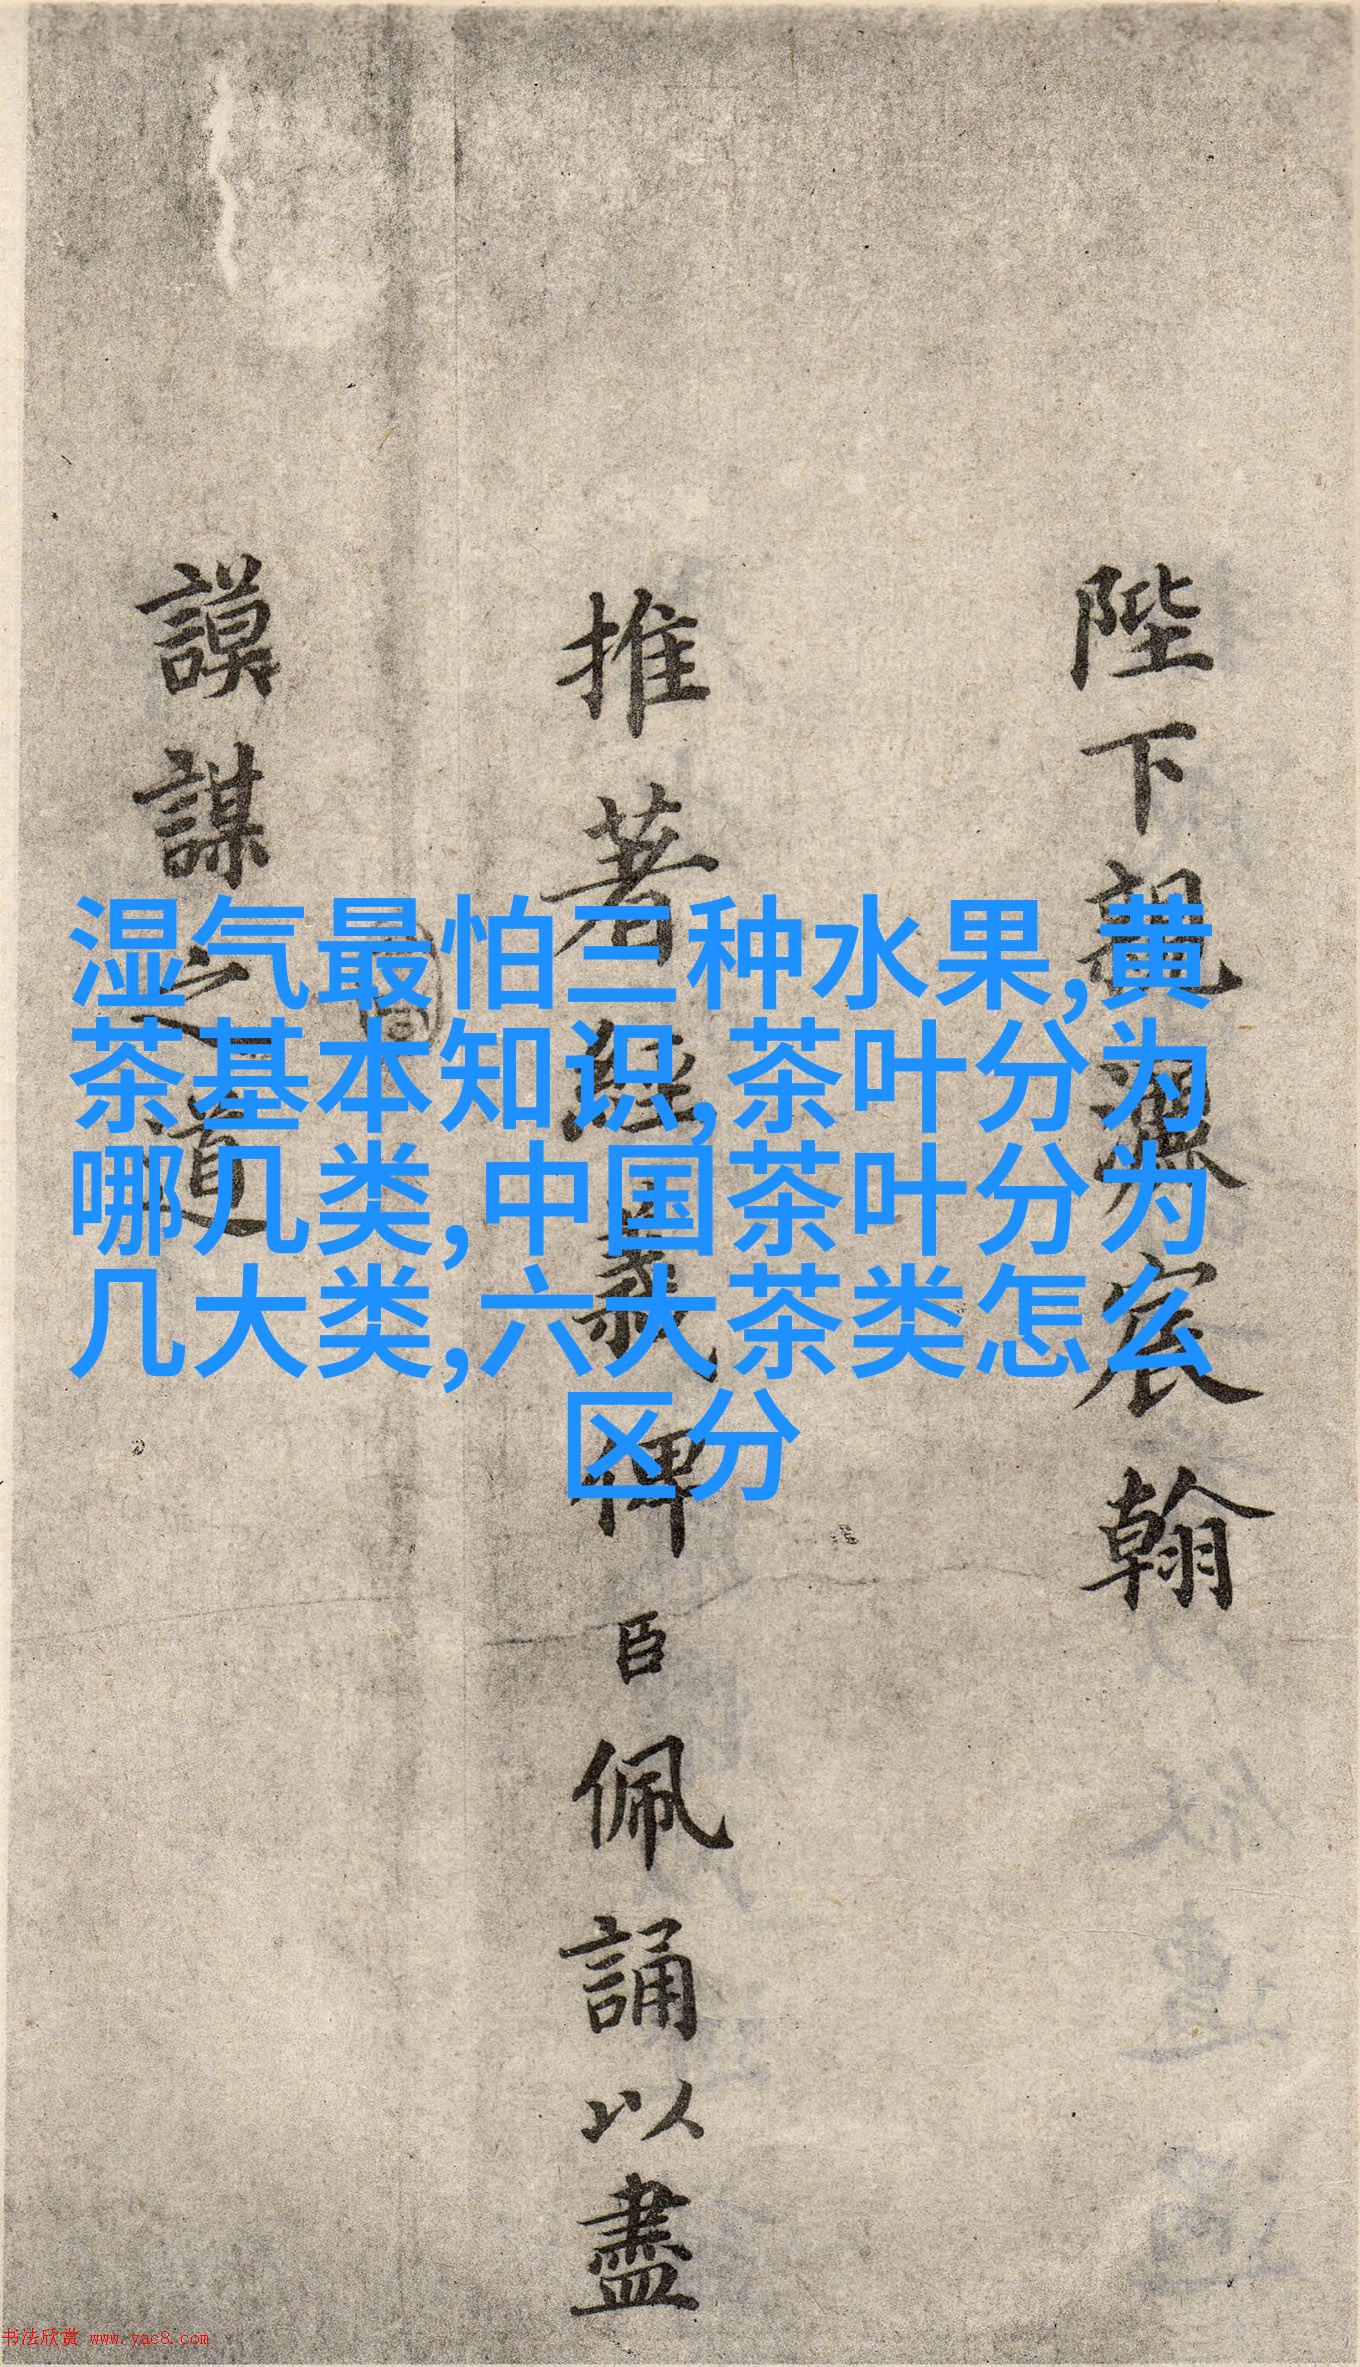 陛下親灑宸翰
推著經義俾臣佩誦以盡
謨謀之道
湿气最怕三种水果,黄
茶基本知识,茶叶分为
哪几类,中国茶叶分为
几大类,六大茶类怎么
区分
书法欣赏 www.yac8.com